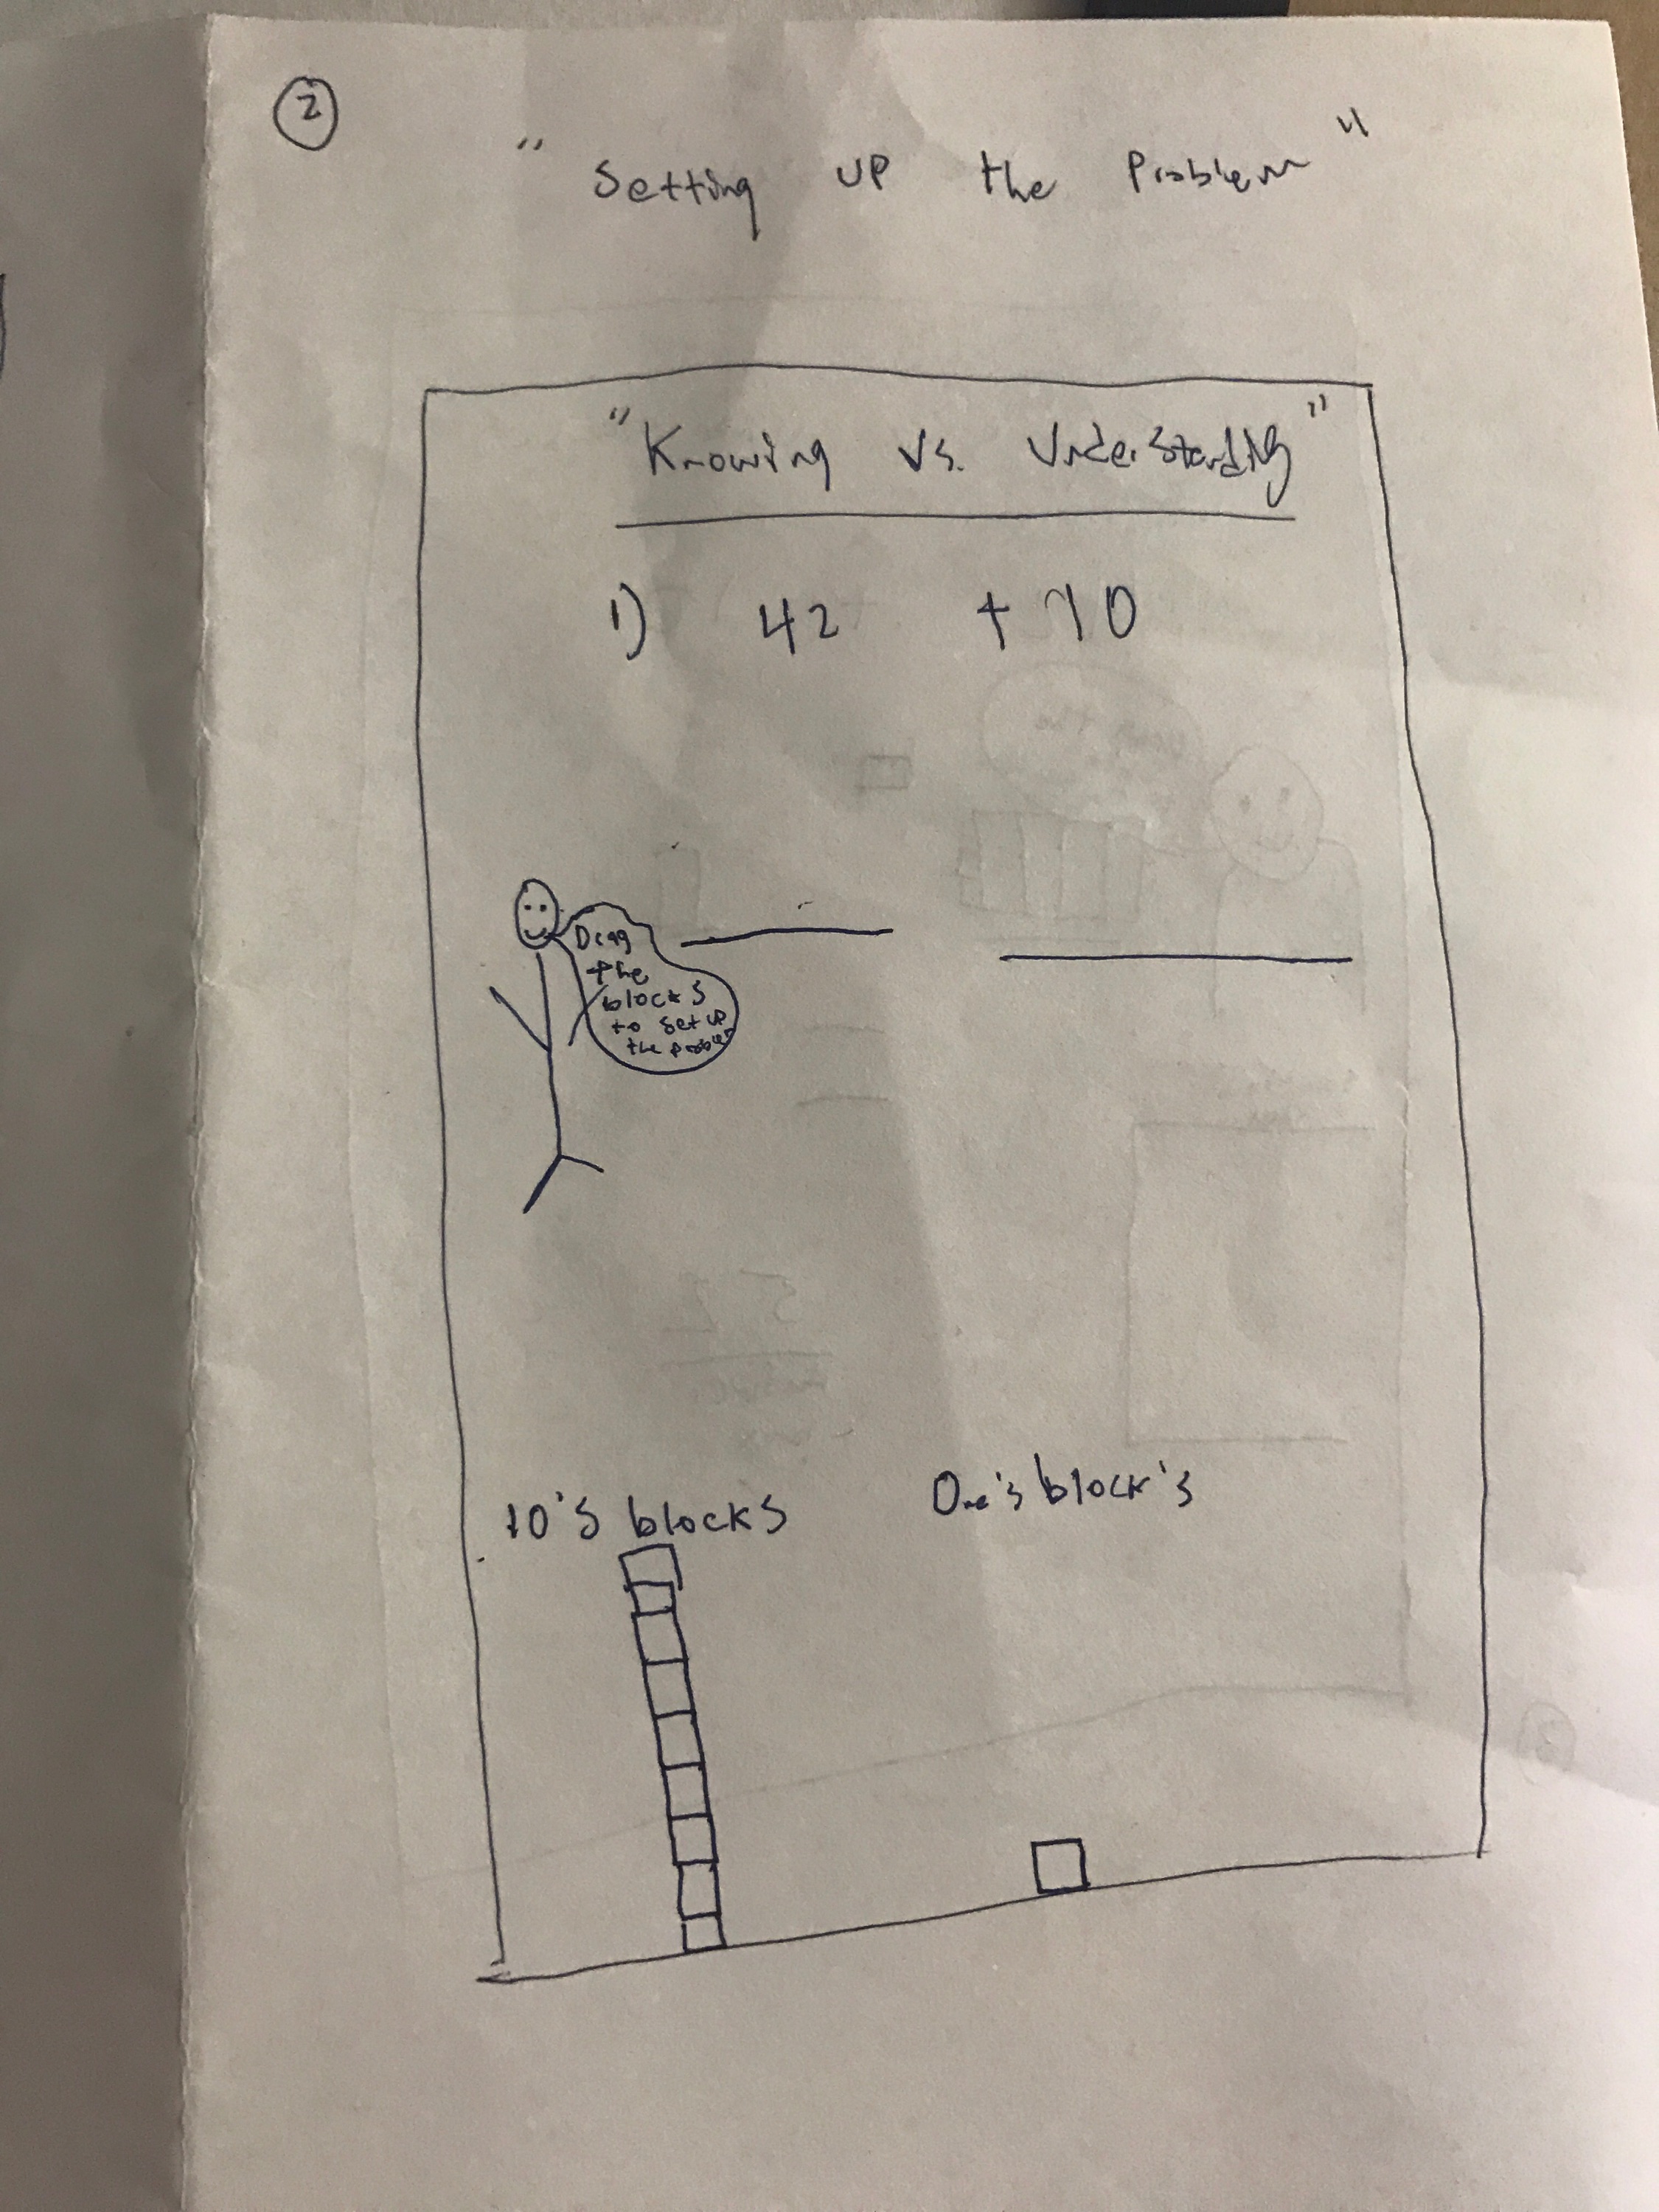 2
" Setting UP the Problem "
"Knowing Vs. Understanding"
1) 42 + 10
Drag
the
blocks
to set up
the problem
10's blocks
One's block's